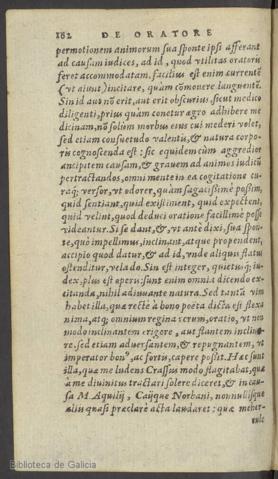 182 DE ORATORE
permotionem animorum sua sponte ipsi afferant
ad causam iudices, ad id, quod vtilitas oratoris
feret accommodatam. facilius est enim currentẽ
(vt aiunt) incitare, quàm cõmouere languentẽ.
Sin id aut nõ erit, aut erit obscurius, sicut medico
diligenti, prius quàm conetur ægro adhibere me
dicinam, nõ solùm morbus eius cui mederi volet,
sed etiam consuetudo valentis, & natura corpo-
ris cognoscenda est: sic equidem cùm aggredior
ancipitem causam, & grauem ad animos iudicũ
pertractandos, omni mente in ea cogitatione cu-
raq; versor, vt odorer, quàm sagacissimè possim,
quid sentiant, quid existiment, quid expectent,
quid velint, quod deduci oratione facillimè posse
videantur. Si se dant, & vt antè dixi, sua spon-
te, quò impellimus, inclinant, atque propendent,
accipio quod datur, & ad id, vnde aliquis flatus
ostenditur, vela do. Sin est integer, quietusq; iu-
dex, plus est operis: sunt enim omnia dicendo ex-
citanda, nihil adiuuante natura. Sed tantã vim
habet illa, quæ rectè à bono poëta dicta est flexa
nima, atq; omnium regina rerum, oratio, vt non
modo inclinantem erigere, aut stantem inclina-
re. sed etiam aduersantem, & repugnantem, vt
imperator bonꝰ, ac fortis, capere possit. Hæc sunt
illa, quæ me ludens Crassus modo flagitabat, quæ
à me diuinitus tractari solere diceret, & in cau-
sa M Aquilij, Caijque Norbani, nonnullisque
alijs quasi præclarè acta laudaret: quæ meher-
cule
Biblioteca de Galicia